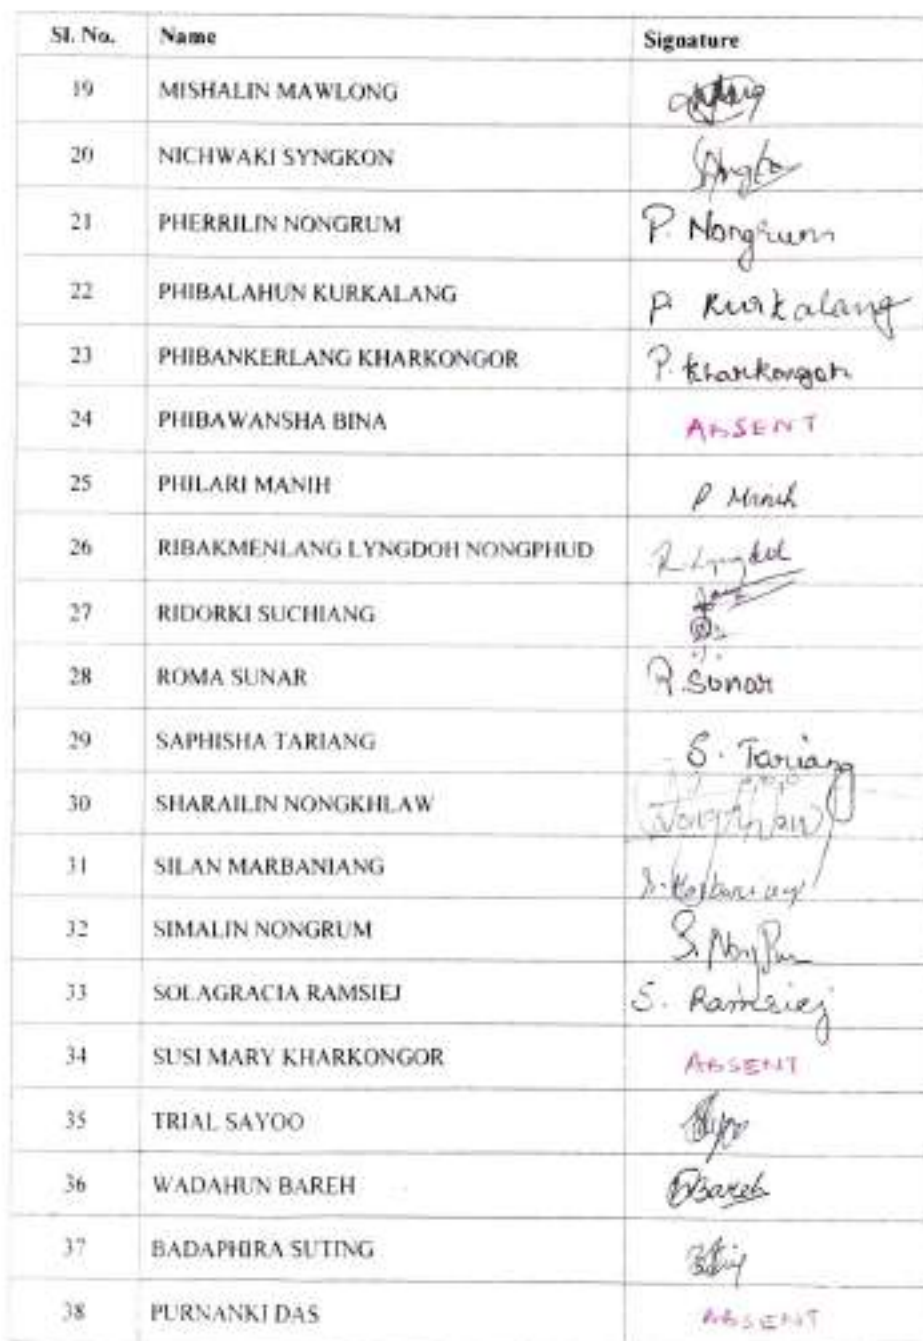 Sl. No. Name Signature
19 MISHALIN MAWLONG
20 NICHWAKI SYNGKON
21 PHERRILIN NONGRUM P. Nongrum
22 PHIBALAHUN KURKALANG P Kurkalang
23 PHIBANKERLANG KHARKONGOR P. Kharkongor
24 PHIBAWANSHA BINA ABSENT
25 PHILARI MANIH P Manih
26 RIBAKMENLANG LYNGDOH NONGPHUD R Lyngdoh
27 RIDORKI SUCHIANG
28 ROMA SUNAR R. Sunar
29 SAPHISHA TARIANG S. Tariang
30 SHARAILIN NONGKHLAW
31 SILAN MARBANIANG
32 SIMALIN NONGRUM
33 SOLAGRACIA RAMSIEJ S. Ramsiej
34 SUSI MARY KHARKONGOR ABSENT
35 TRIAL SAYOO
36 WADAHUN BAREH Bareh
37 BADAPHIRA SUTING
38 PURNANKI DAS ABSENT